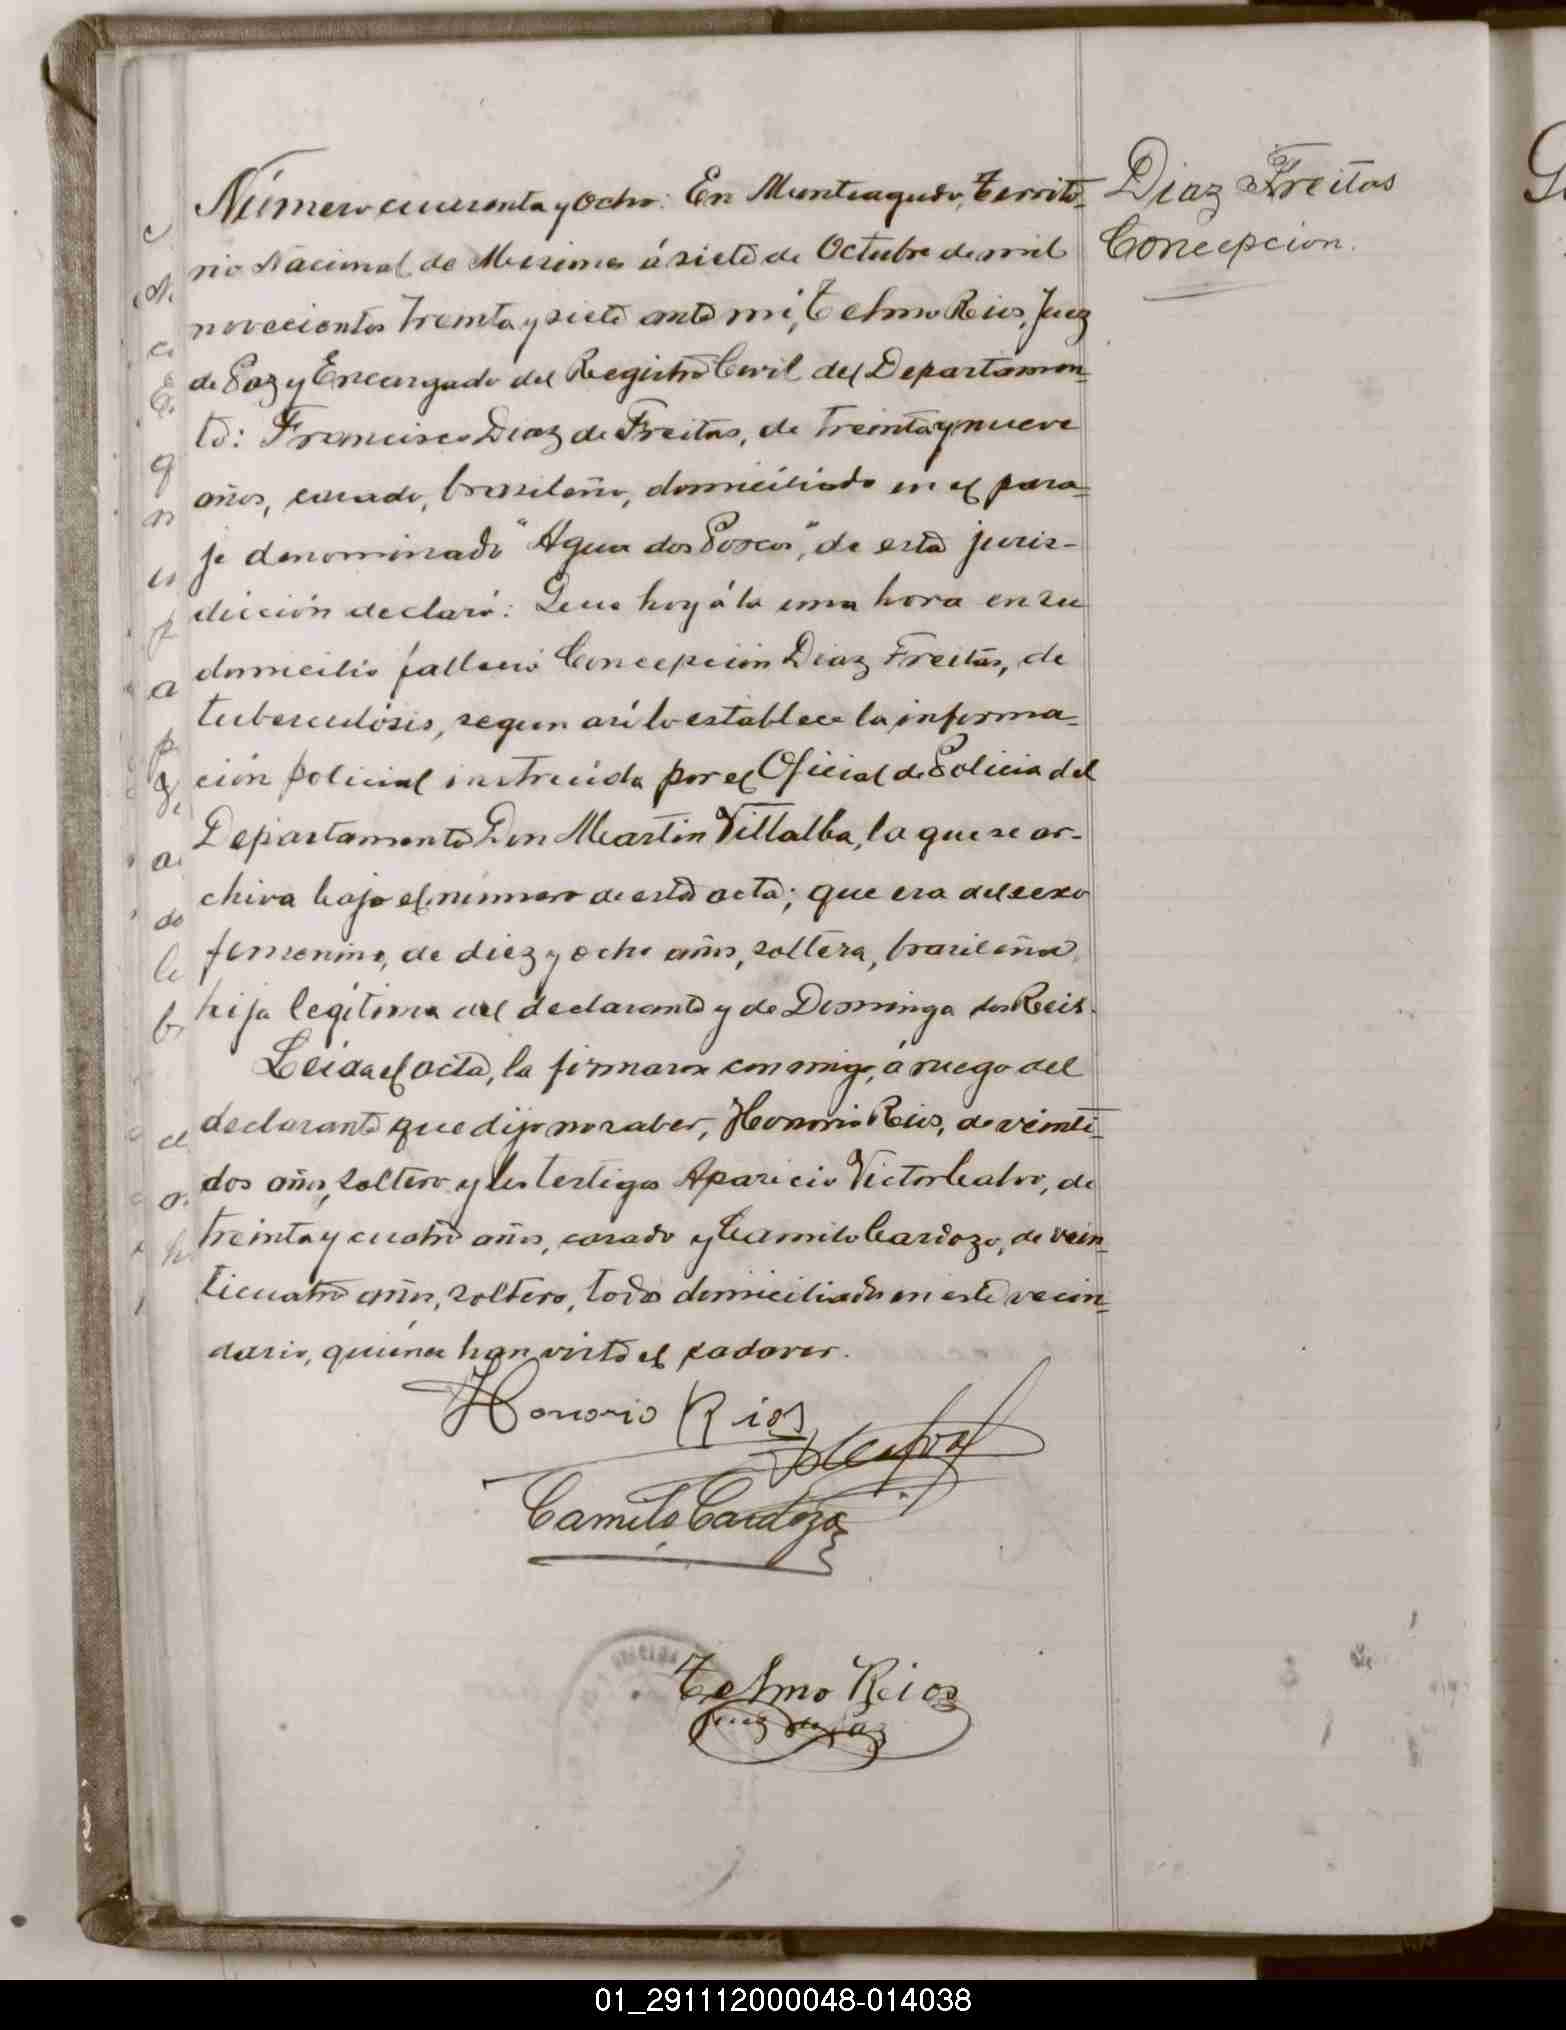 Número cuarenta y ocho: En Monteagudo, Territo-
rio Nacional de Misiones á siete de Octubre de mil
novecientos treinta y siete ante mi, Telmo Rios, Juez
de Paz y Encargado del Registro Civil del Departamen-
to: Francisco Diaz de Freitas, de treinta y nueve
años, casado, brasileño, domiciliado en el para-
je denominado "Agua dos Porcos", de esta juris-
dicción declaró: Que hoy á la una hora en su
domicilio falleció Concepción Diaz Freitas, de
tuberculósis, segun así lo establece la informa-
ción policial instruida por el Oficial de Policia del
Departamento Don Martin Villalba, la que se ar-
chiva bajo el número de esta acta; que era del sexo
femenino, de diez y ocho años, soltera, brasileña,
hija legítima del declarante y de Dominga dos Reis.
Leida el acta, la firmaron conmigo, á ruego del
declarante que dijo no saber, Honorio Rios, de veinti-
dos años, soltero y los testigos Aparicio Victor Calvo, de
treinta y cuatro años, casado y Camilo Cardozo, de vein-
ticuatro años, soltero, todos domiciliados en este vecin-
dario, quiénes han visto el cadaver.
Diaz Freitas
Concepcion.
Honorio Rios
Camilo Cardozo
Telmo Rios
Juez de Paz
01_291112000048-014038